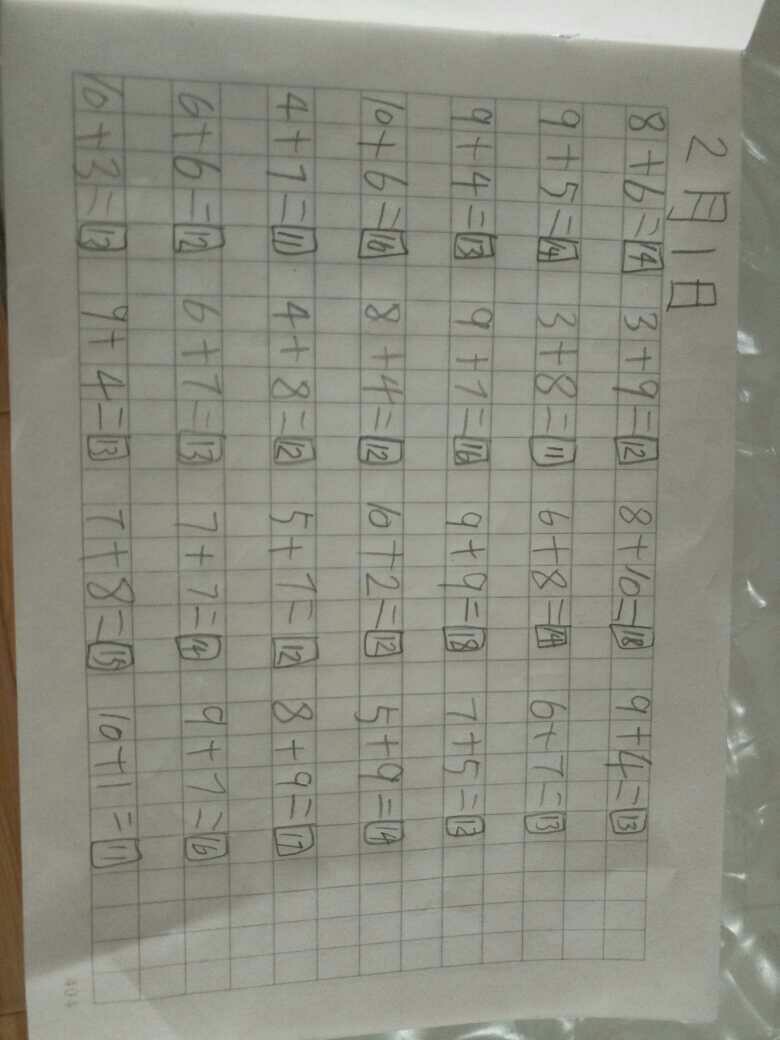 2月1日
8+6=14 3+9=12 8+10=18 9+4=13
9+5=14 3+8=11 6+8=14 6+7=13
9+4=13 9+7=16 9+9=18 7+5=12
10+6=16 8+4=12 10+2=12 5+9=14
4+7=11 4+8=12 5+7=12 8+9=17
6+6=12 6+7=13 7+7=14 9+7=16
10+3=13 9+4=13 7+8=15 10+1=11
404